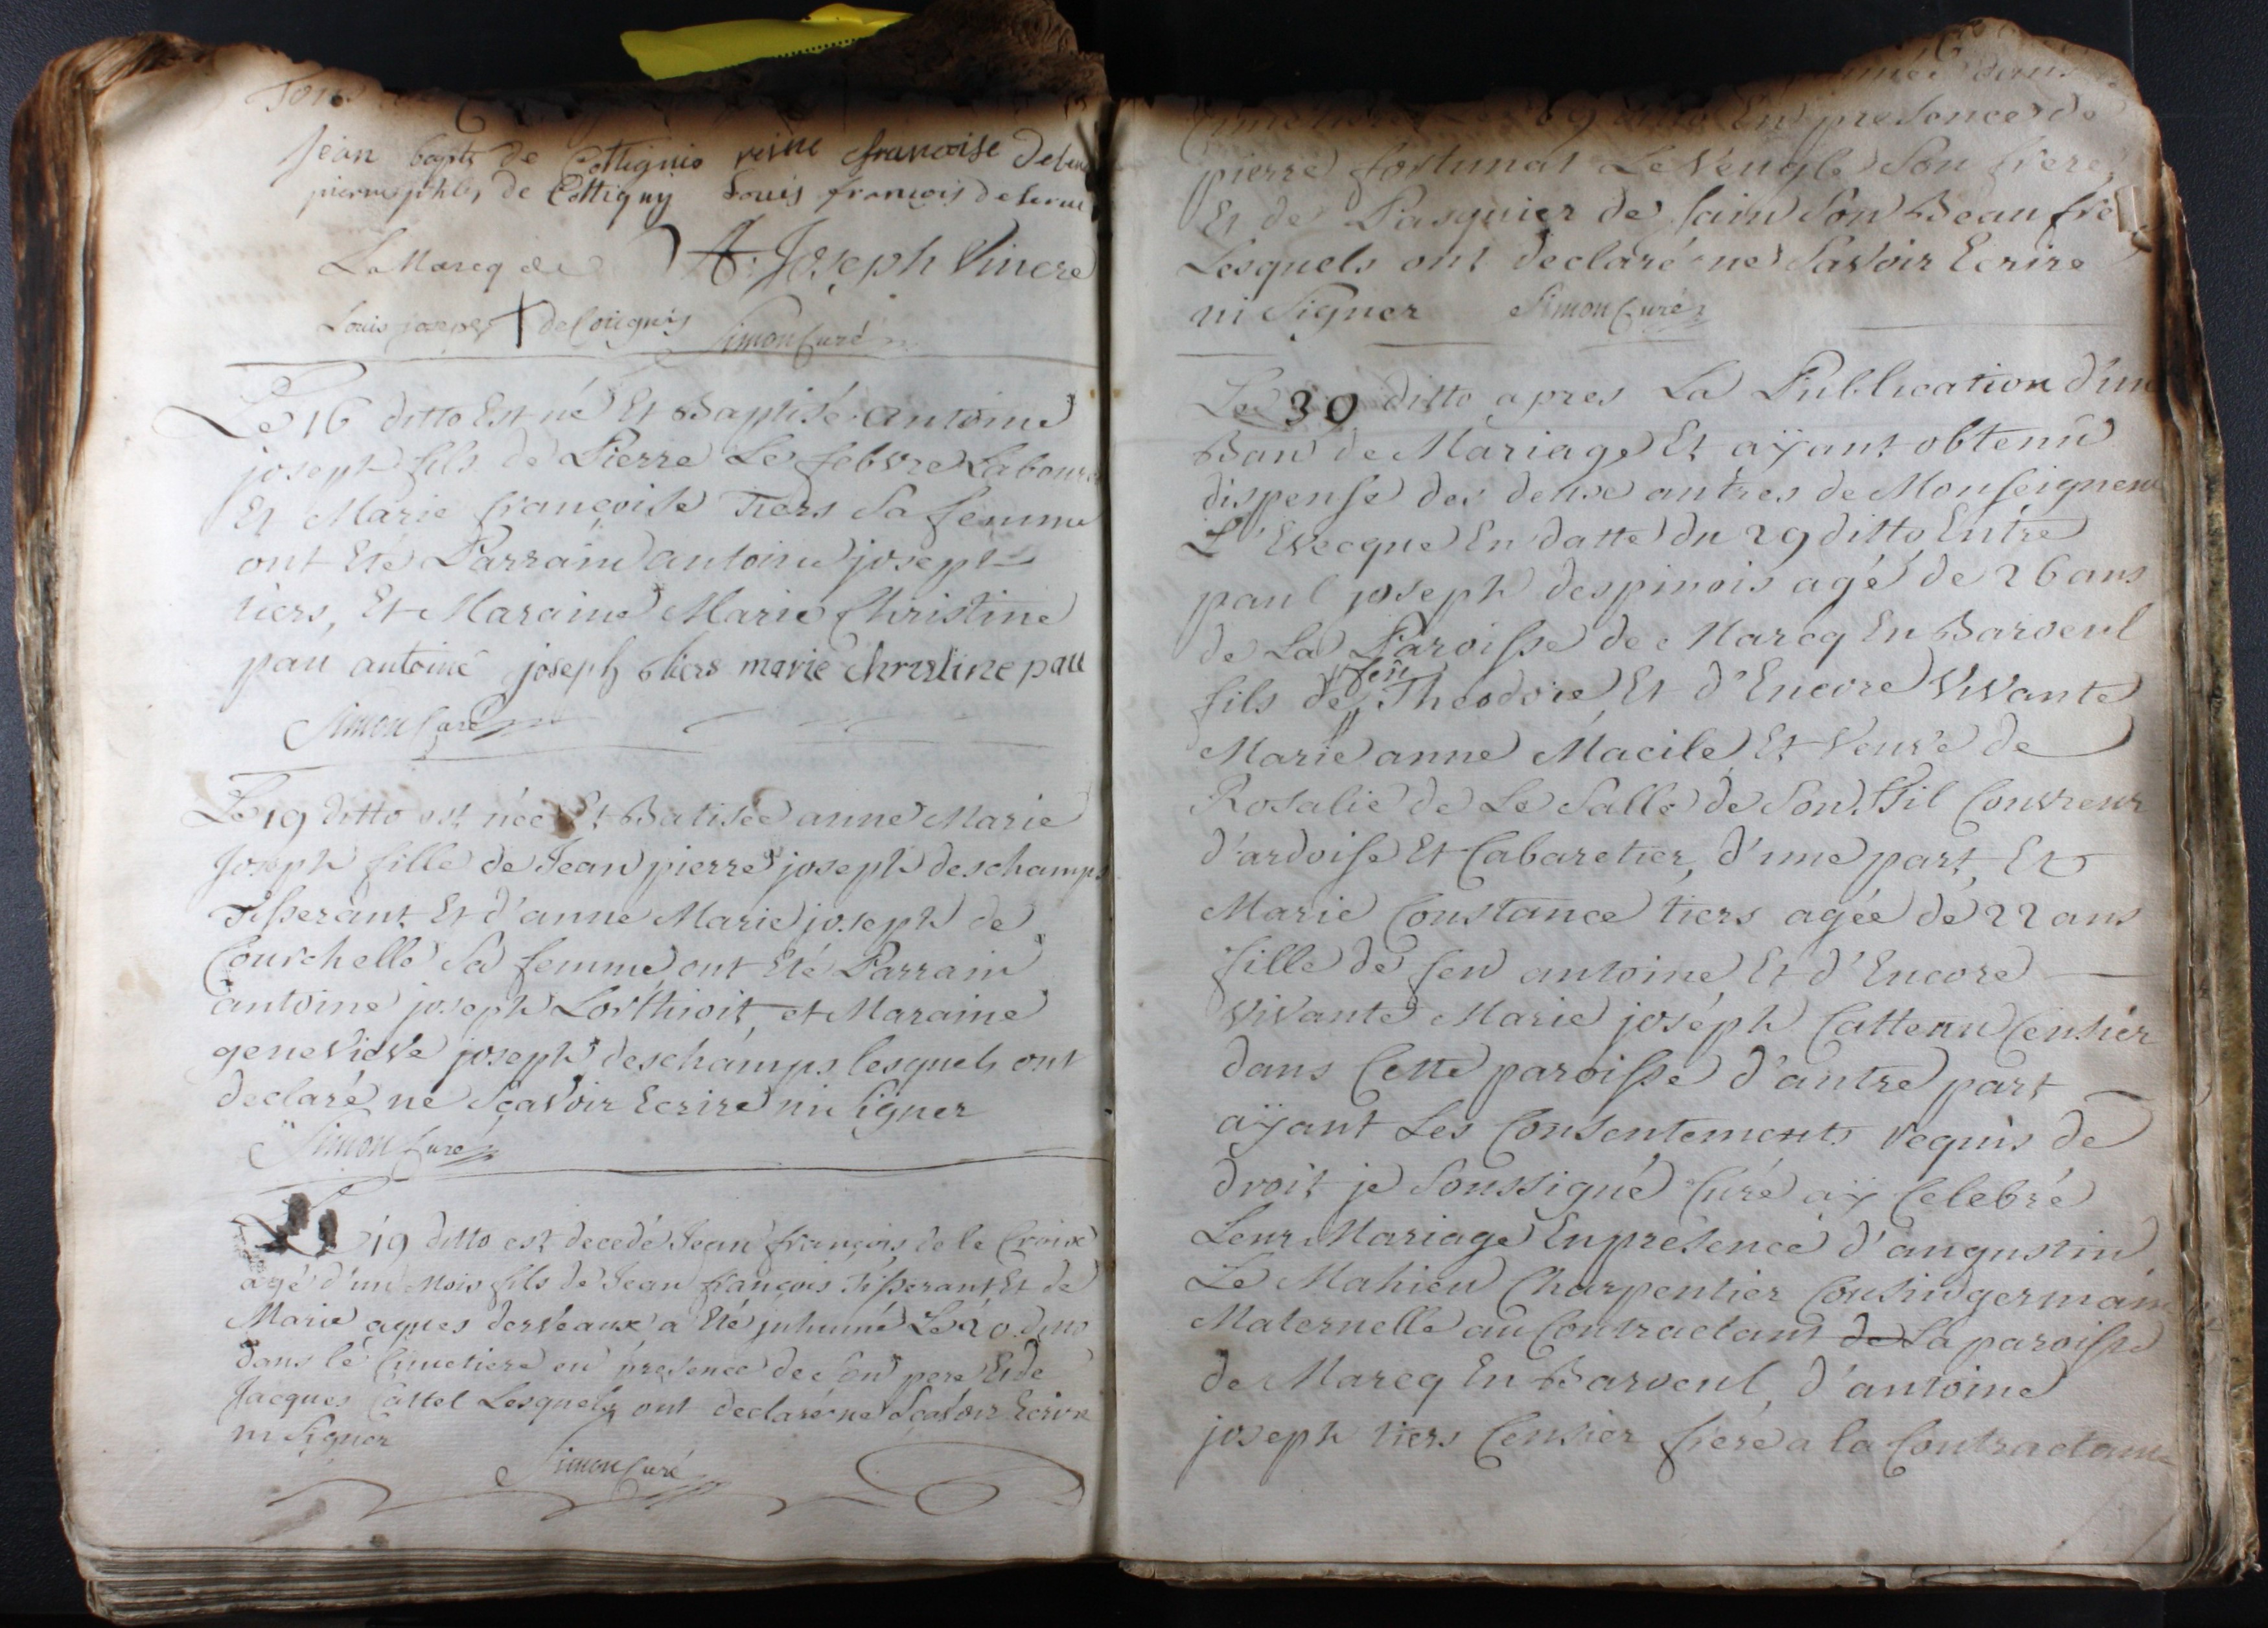 Jean bapte de Cottignie reine francoise
pierre de Cottigny Louis francois
A: Joseph Vinere
Louis joseph de Cotignis Simon Curé
Le 16 ditto Est né Et Baptisé antoine
joseph fils de Pierre Le febvre Laboureur
Et Marie françoise Tiers Sa femme
ont Eté Parrain antoine joseph
tiers, Et Maraine Marie Christine
pau antoine joseph tiers marie christine pau
Simon Curé
Le 19 ditto est née Et Batisée anne Marie
Joseph fille de Jean pierre joseph deschamps
Tisserant Et d'anne Marie joseph de
Courchelle Sa femme, ont Eté Parrain
antoine joseph Lorthioit, et Maraine
genevieve joseph deschamps lesquels ont
declaré ne Sçavoir Ecrire ni signer
Simon Curé
Le 19 ditto est decedé Jean françois de le Croix
agé d'un Mois fils de Jean françois Tisserant Et de
Marie agnes derveaux a Eté inhumé Le 20 ditto
dans le Cimetiere en presence de Son pere Et de
Jacques Cattel Lesquels ont declaré ne Scavoir Ecrire
ni Signer
Simon Curé
dans
ditto En presence de
pierre fortunat Le Veugle Son frere,
Et de Pasquier de sain Son Beau fre
Lesquels ont declaré ne Savoir Ecrire
ni Signer Simon Curé
Le 30 ditto apres La Publication d'un
Ban de Mariage Et aÿant obtenû
dispense des deux autres de Monseigneur
L'Evecque En datte du 29 ditto Entre
paul joseph despinois agé de 26 ans
de La Paroisse de Marcq En Baroeul
fils de feu Theodore Et d'Encore Vivante
Marie anne Macile Et Veuve de
Rosalie de Le Salle de Son Stil Couvreur
d'ardoise Et Cabaretier, d'une part, Et
Marie Constance tiers agée de 22 ans
fille de feu antoine Et d'Encore
Vivante Marie joseph Catteau Censier
dans Cette paroisse d'autre part
aÿant Les Consentements requis de
droit je Soussigné Curé aÿ Celebré
Leur Mariage En présence d'augustin
Le Mahieu Charpentier Cousin germain
Maternelle au Contractant de La paroisse
de Marcq En Baroeul, d'antoine
joseph tiers Censier frere a la Contractante